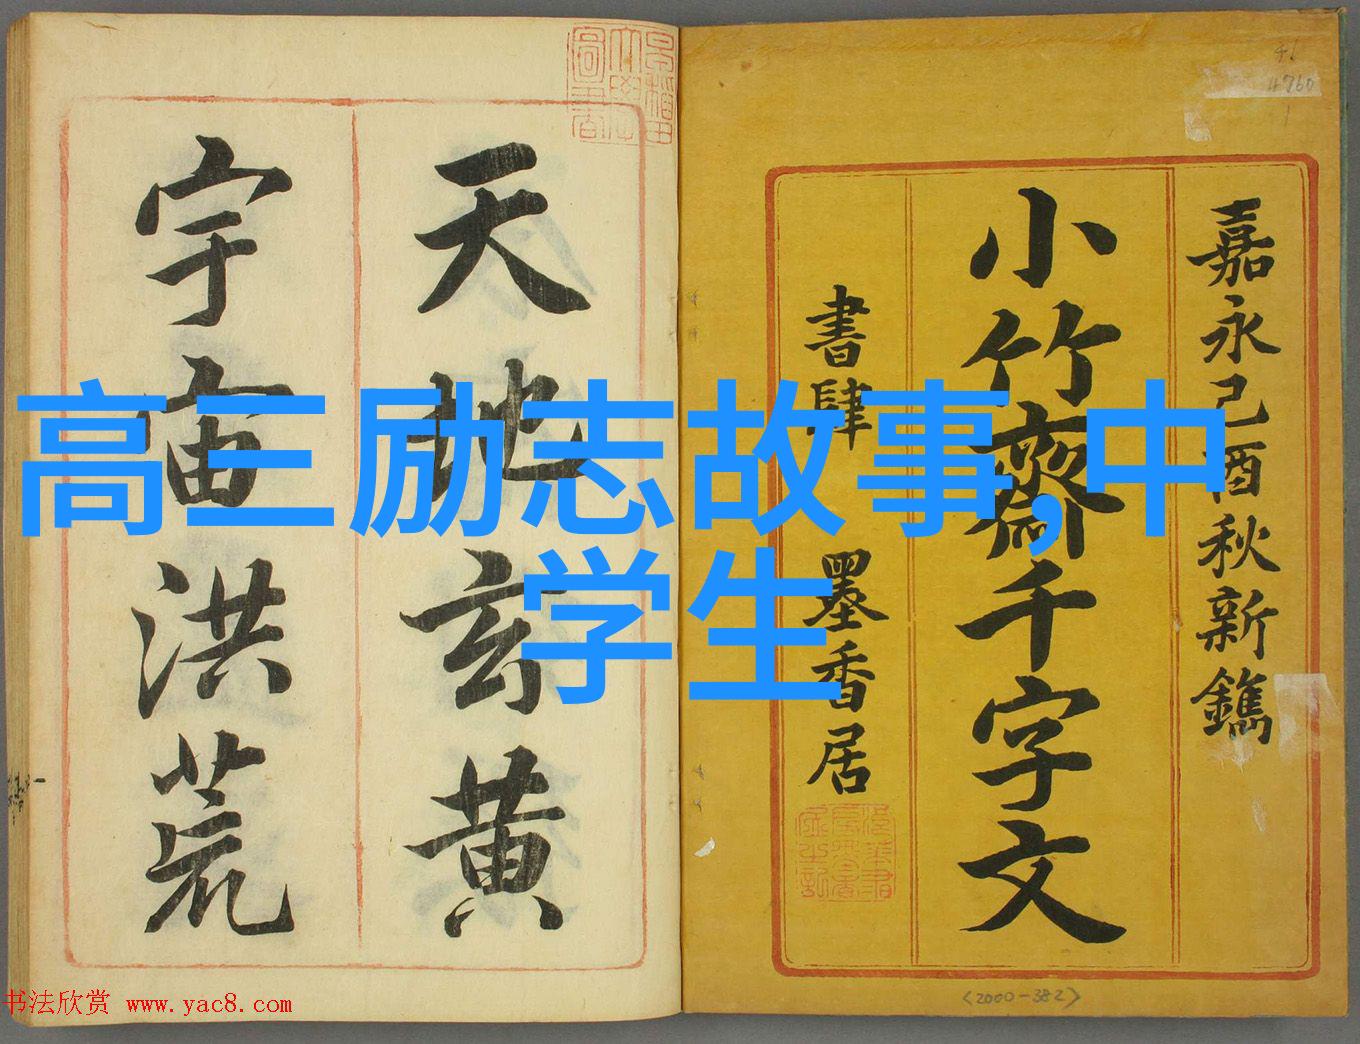 嘉永己酉秋新鐫
小竹齋千字文
書肆 墨香居
天地玄黄
宇宙洪荒
高三励志故事,中
学生
46
4760
<2000-382>
书法欣赏 www.yac8.com